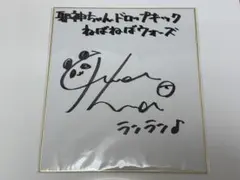 邪神ちゃんドロップキック
ねばねばウォーズ
ランラン♪